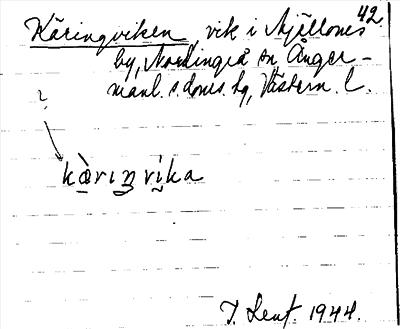 42
Käringviken vik i Mjällones
by, Nordingrå sn, Ånger-
manl. s. doms. hg, Västern. l.
?
kàrıŋvika
J. Lent 1944.